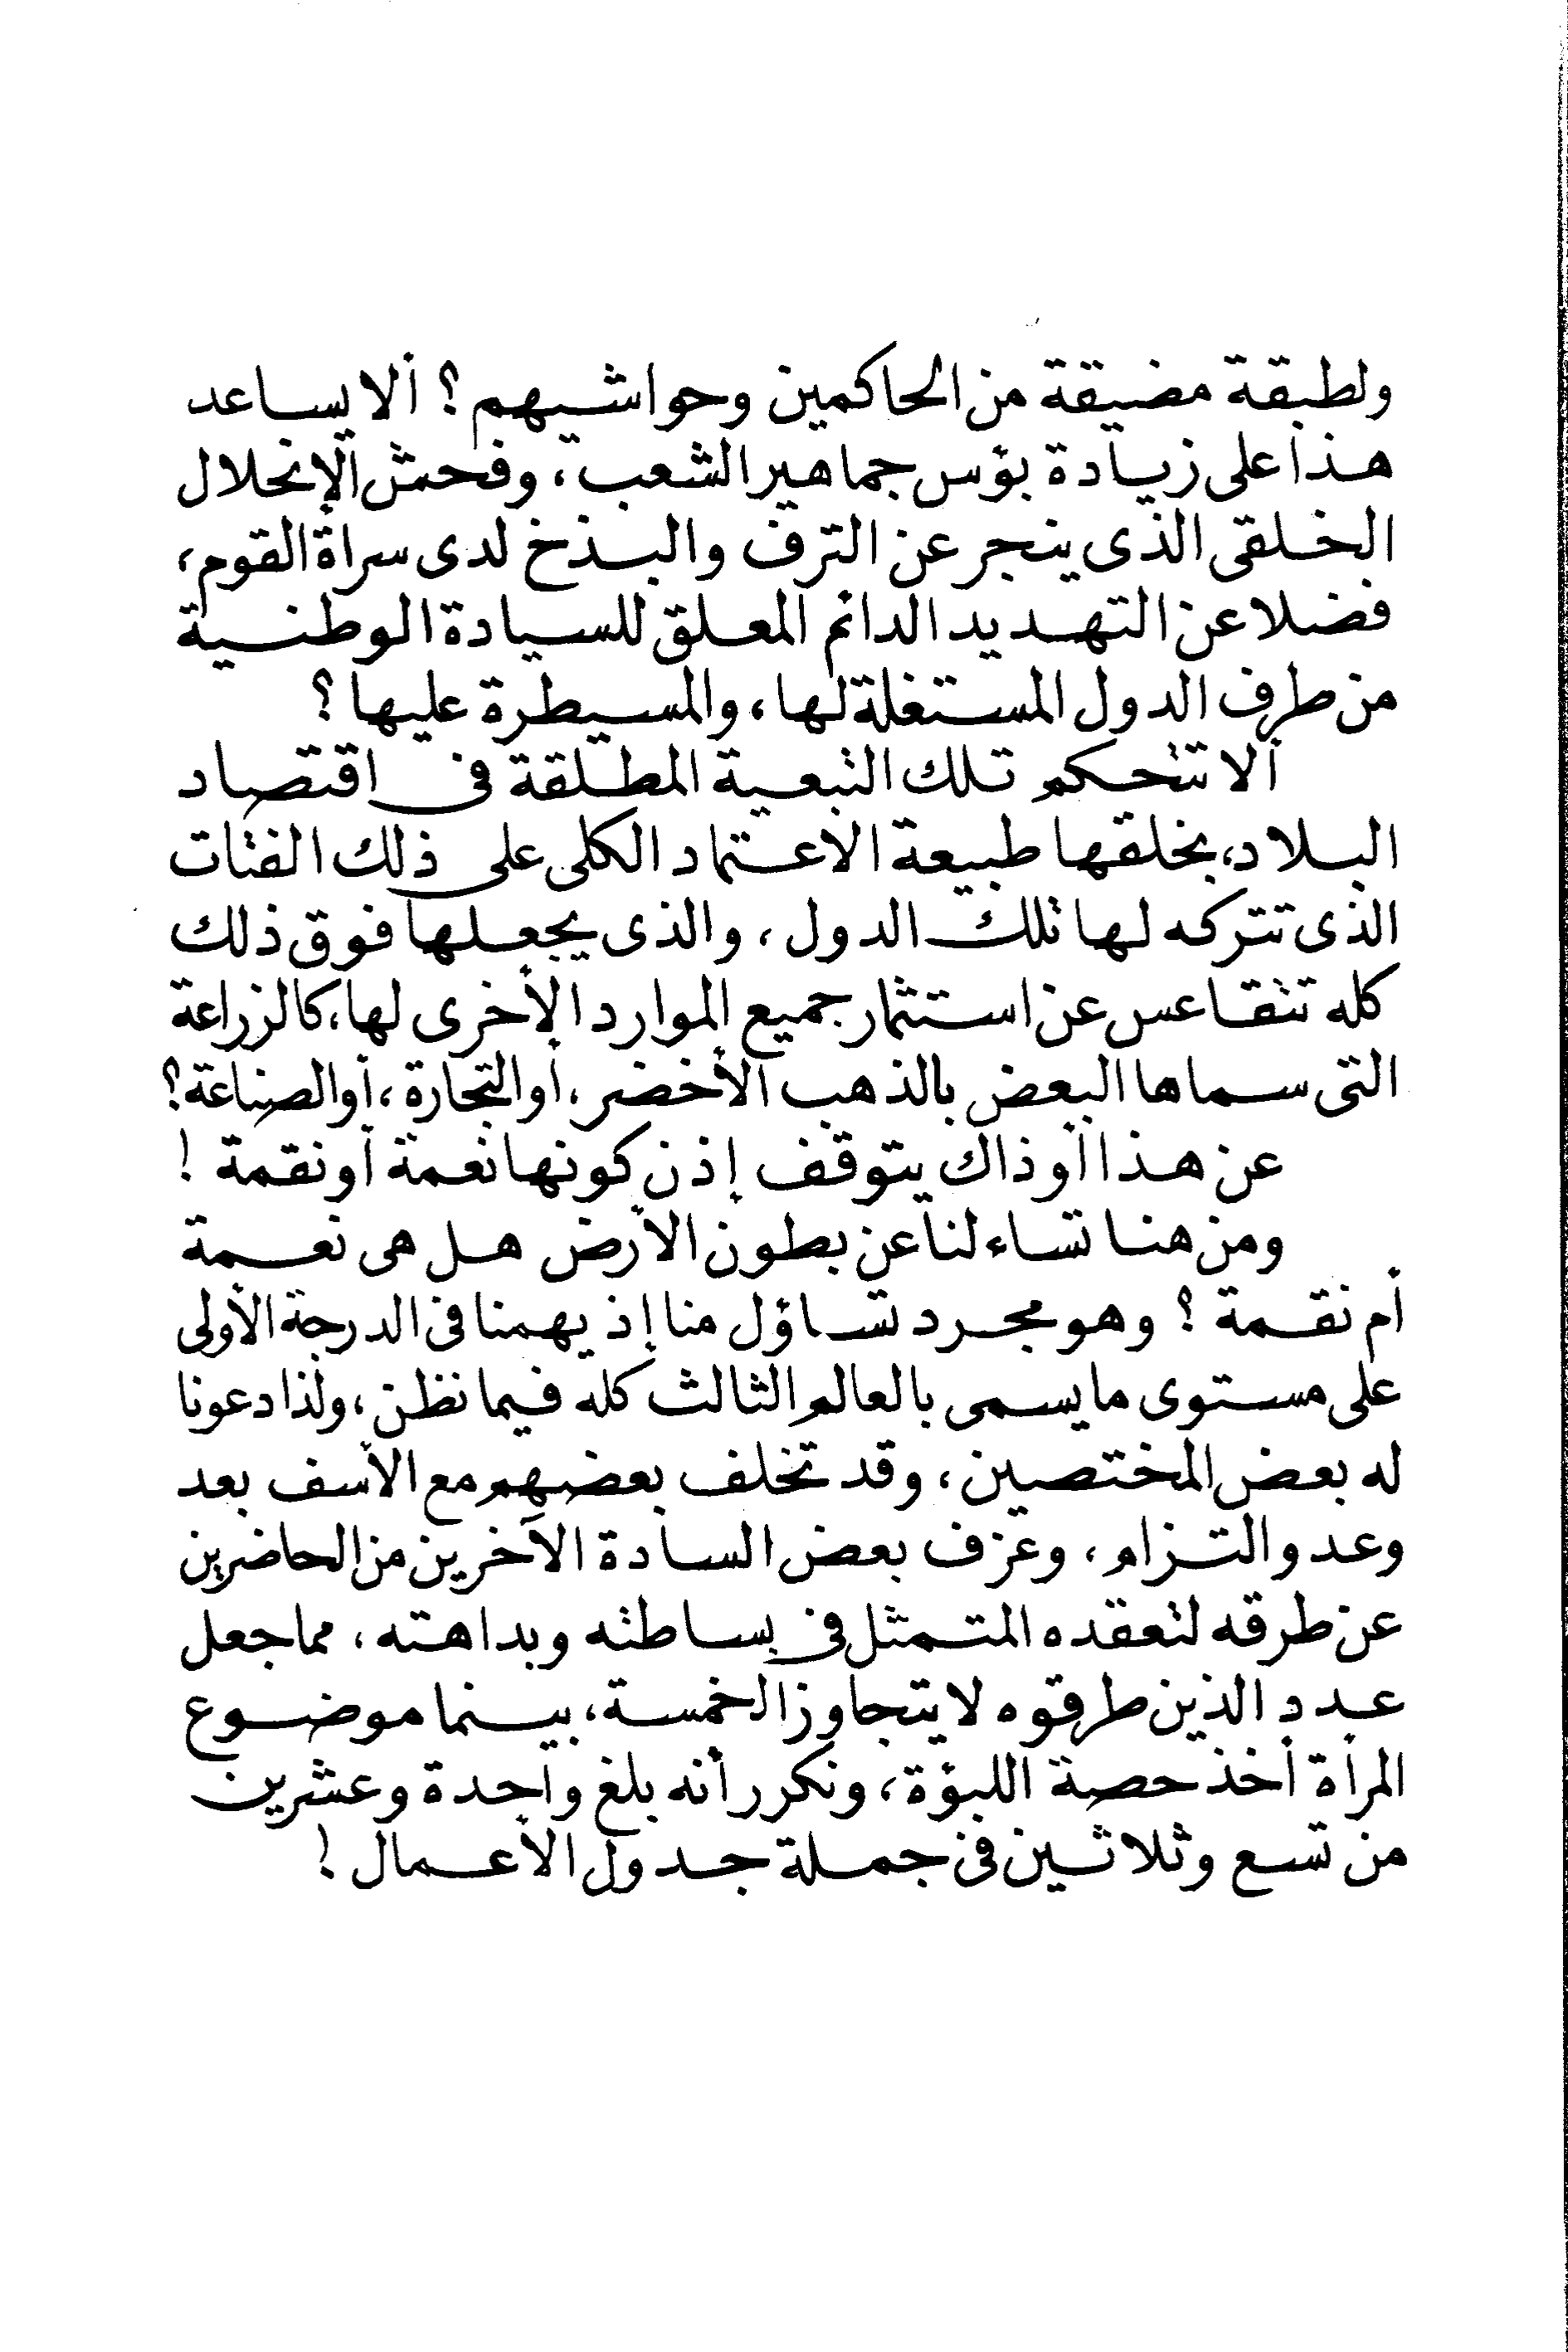 ولطبقة مضيقة من الحاكمين وحواشيهم ؟ ألا يساعد
هذا على زيادة بؤس جماهير الشعب ، وفحش الإنحلال
الخلقى الذى ينجر عن الترف والبذخ لدى سراة القوم ،
فضلا عن التهديد الدائم المعلق للسيادة الوطنية
من طرف الدول المستغلة لها ، والمسيطرة عليها ؟
ألا تتحكم تلك التبعية المطلقة فى اقتصاد
البلاد، بخلقها طبيعة الاعتماد الكلى على ذلك الفتات
الذى تتركه لها تلك الدول ، والذى يجعلها فوق ذلك
كله تتقاعس عن استثمار جميع الموارد الأخرى لها ، كالزراعة
التى سماها البعض بالذهب الأخضر ، أو التجارة ، أو الصناعة ؟
عن هذا أو ذاك يتوقف إذن كونها نعمة أو نقمة !
ومن هنا تساءلنا عن بطون الأرض هل هى نعمة
أم نقمة ؟ وهو مجرد تساؤل منا إذ يهمنا فى الدرجة الأولى
على مستوى ما يسمى بالعالم الثالث كله فيما نظن ، ولذا دعونا
له بعض المختصين ، وقد تخلف بعضهم مع الأسف بعد
وعد والتزام ، وعزف بعض السادة الآخرين من الحاضرين
عن طرقه لتعقده المتمثل فى بساطته وبداهته ، مما جعل
عدد الذين طرقوه لا يتجاوز الخمسة ، بينما موضوع
المرأة أخذ حصة اللبؤة ، ونكرر أنه بلغ واحدة وعشرين
من تسع وثلاثين فى جملة جدول الأعمال !